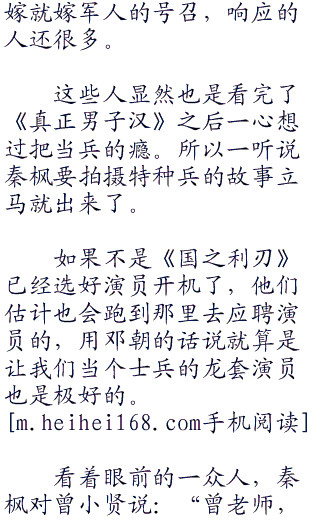 嫁就嫁军人的号召，响应的
人还很多。
这些人显然也是看完了
《真正男子汉》之后一心想
过把当兵的瘾。所以一听说
秦枫要拍摄特种兵的故事立
马就出来了。
如果不是《国之利刃》
已经选好演员开机了，他们
估计也会跑到那里去应聘演
员的，用邓朝的话说就算是
让我们当个士兵的龙套演员
也是极好的。
[m.heihei168.com手机阅读]
看着眼前的一众人，秦
枫对曾小贤说：“曾老师，